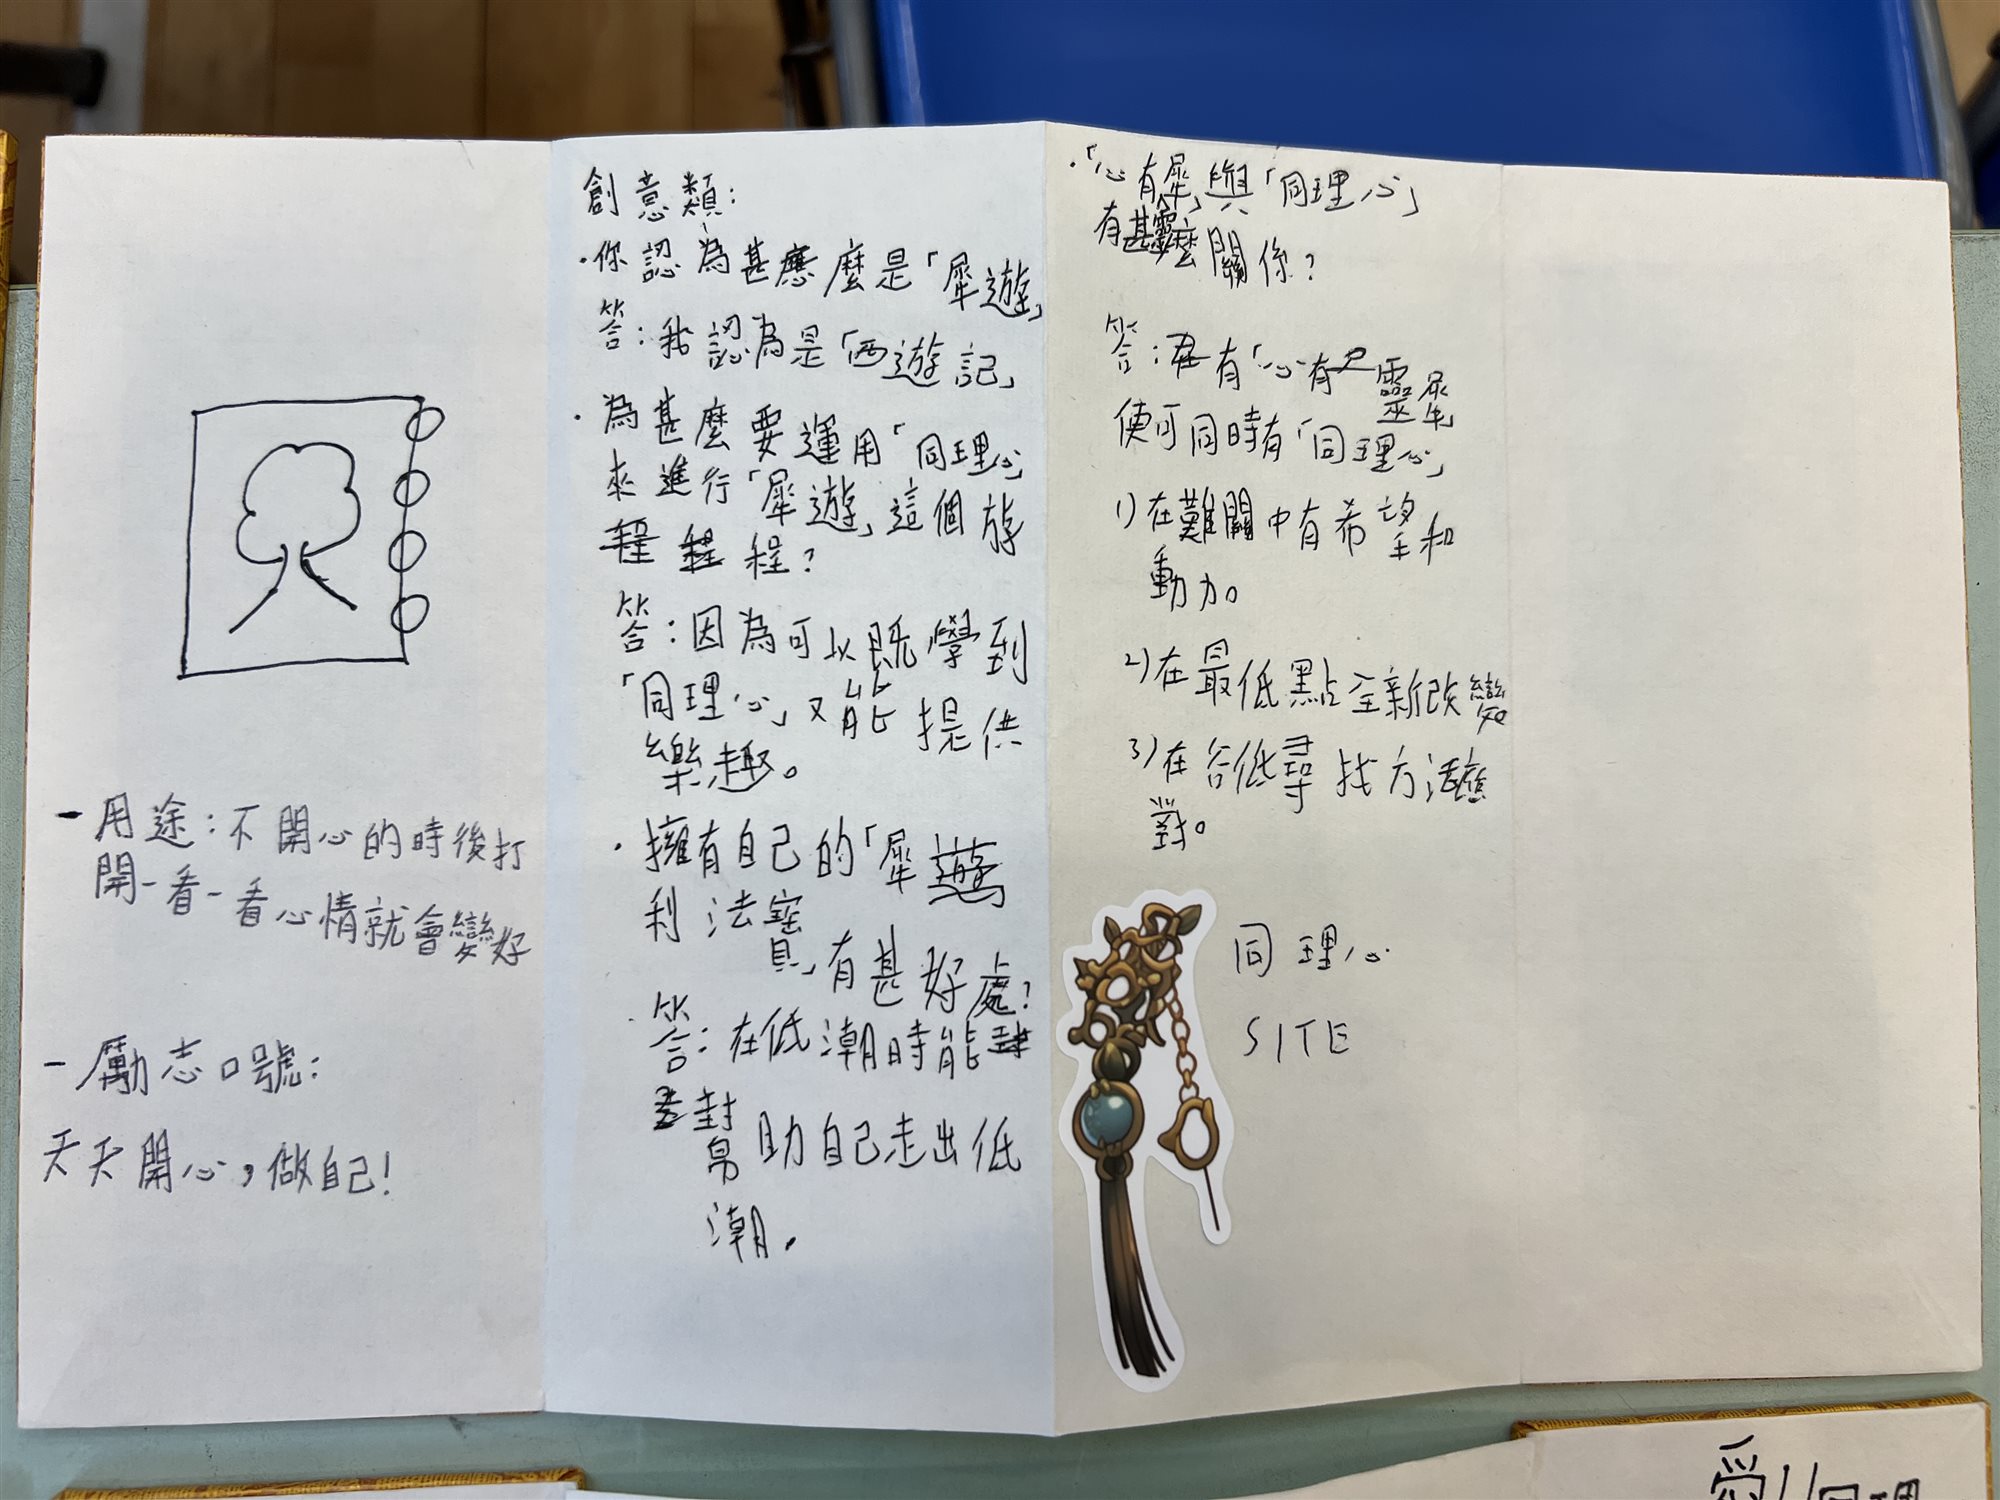 一用途：不開心的時後打
開一看一看心情就會變好
一勵志口號：
天天開心，做自己！
創意類：
·你認為甚應麼是「犀遊」
答：我認為是「西遊記」
·為甚麼要運用「同理心」
來進行「犀遊」這個旅
程？
答：因為可以既學到
「同理心」又能提供
樂趣。
·擁有自己的「犀
利法寶」有甚好處？
答：在低潮時能
封幫助自己走出低
潮。
·「心有靈犀」與「同理心」
有甚麼關係？
答：有「心有靈犀」
便可同時有「同理心」
1)在難關中有希望和
動力。
2)在最低點全新改變
3)在谷低尋找方法應
對。
同理心
SITE